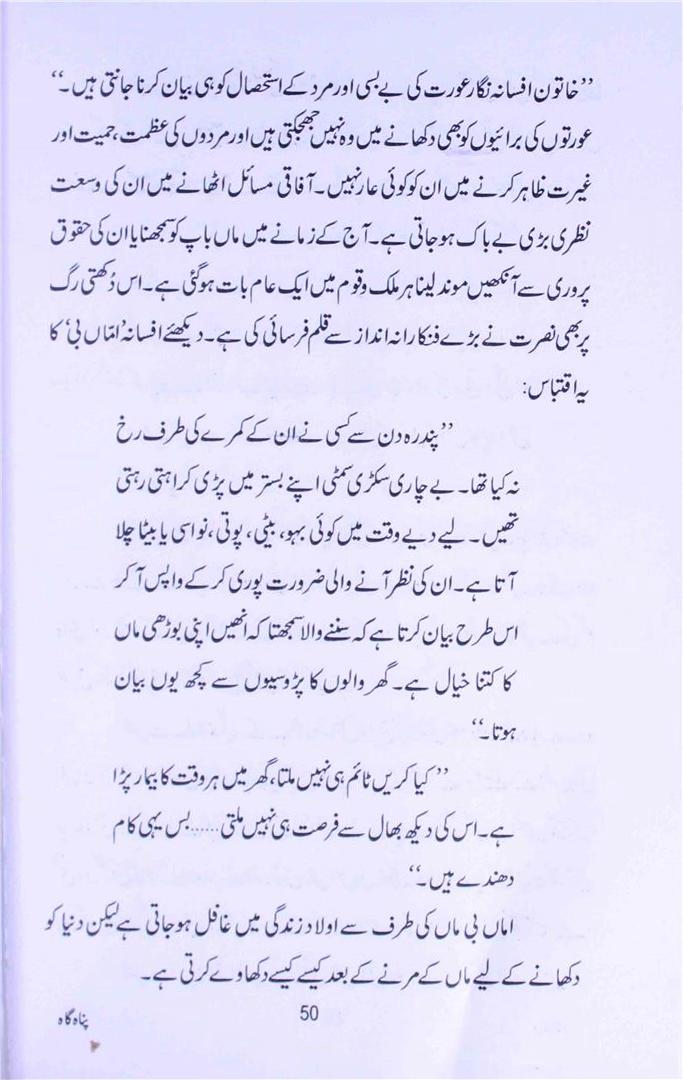 ”خاتون افسانہ نگار عورت کی بے بسی اور مرد کے استحصال کو ہی بیان کرنا جانتی ہیں۔“
عورتوں کی برائیوں کو بھی دکھانے میں وہ نہیں جھجکتی ہیں اور مردوں کی عظمت، حمیت اور
غیرت ظاہر کرنے میں ان کو کوئی عار نہیں۔ آفاقی مسائل اٹھانے میں ان کی وسعت
نظری بڑی بے باک ہو جاتی ہے۔ آج کے زمانے میں ماں باپ کو سمجھنا یا ان کی حقوق
پروری سے آنکھیں موند لینا ہر ملک و قوم میں ایک عام بات ہوگئی ہے۔ اس دُکھتی رگ
پر بھی نصرت نے بڑے فنکارانہ انداز سے قلم فرسائی کی ہے۔ دیکھئے افسانہ ’امّاں بی‘ کا
یہ اقتباس:
”پندرہ دن سے کسی نے ان کے کمرے کی طرف رخ
نہ کیا تھا۔ بے چاری سکڑی سمٹی اپنے بستر میں پڑی کراہتی رہتی
تھیں۔ لیے دیے وقت میں کوئی بہو، بیٹی، پوتی، نواسی یا بیٹا چلا
آتا ہے۔ ان کی نظر آنے والی ضرورت پوری کرکے واپس آکر
اس طرح بیان کرتا ہے کہ سننے والا سمجھتا کہ انھیں اپنی بوڑھی ماں
کا کتنا خیال ہے۔ گھر والوں کا پڑوسیوں سے کچھ یوں بیان
ہوتا۔“
”کیا کریں ٹائم ہی نہیں ملتا، گھر میں ہر وقت کا بیمار پڑا
ہے۔ اس کی دیکھ بھال سے فرصت ہی نہیں ملتی...... بس یہی کام
دھندے ہیں۔“
اماں بی ماں کی طرف سے اولاد زندگی میں غافل ہوجاتی ہے لیکن دنیا کو
دکھانے کے لیے ماں کے مرنے کے بعد کیسے کیسے دکھاوے کرتی ہے۔
50
پناہ گاہ